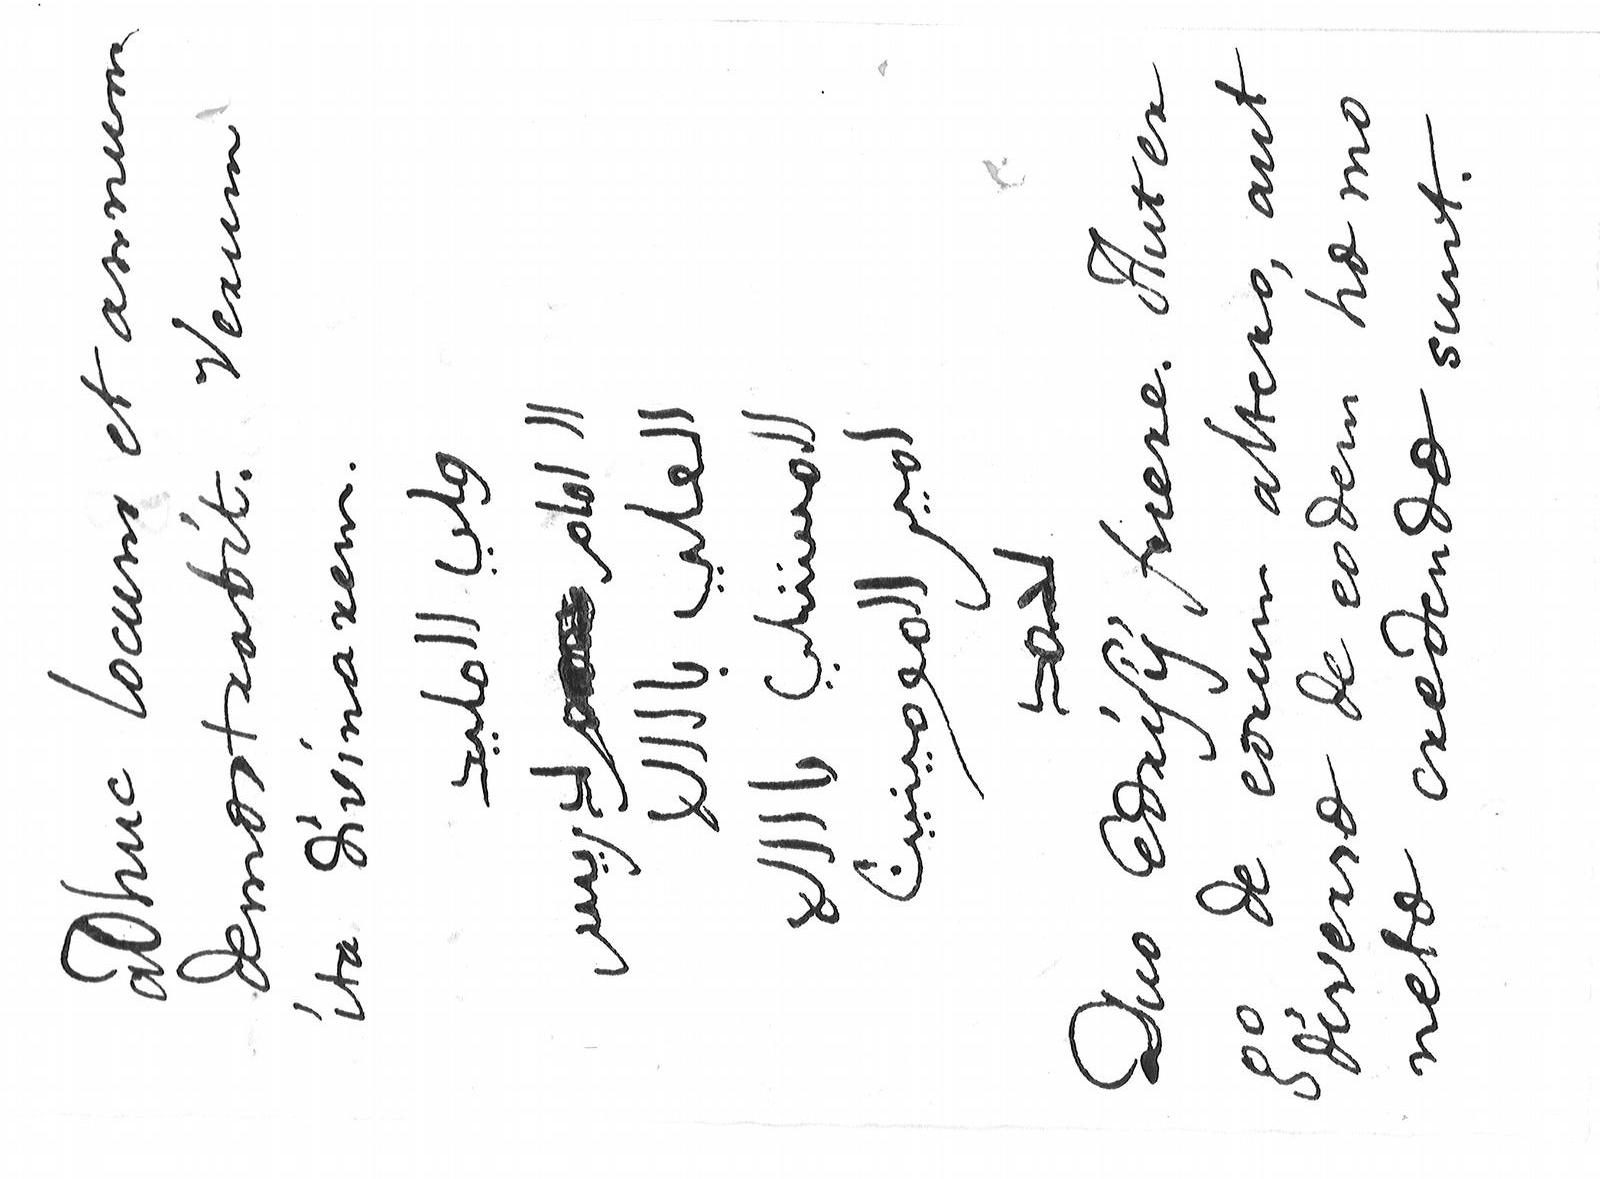 adhuc locum et annum
demostrabit. Verum
ita divinarem.
ولي
الا امام ادريس
العلي بالله
المستعلي بالله
امير المومنين
محمد
Duo Edrisij fuere. Aut er
go de eorum altero, aut
diverso de eodem hæ mo
netæ credendæ sunt.